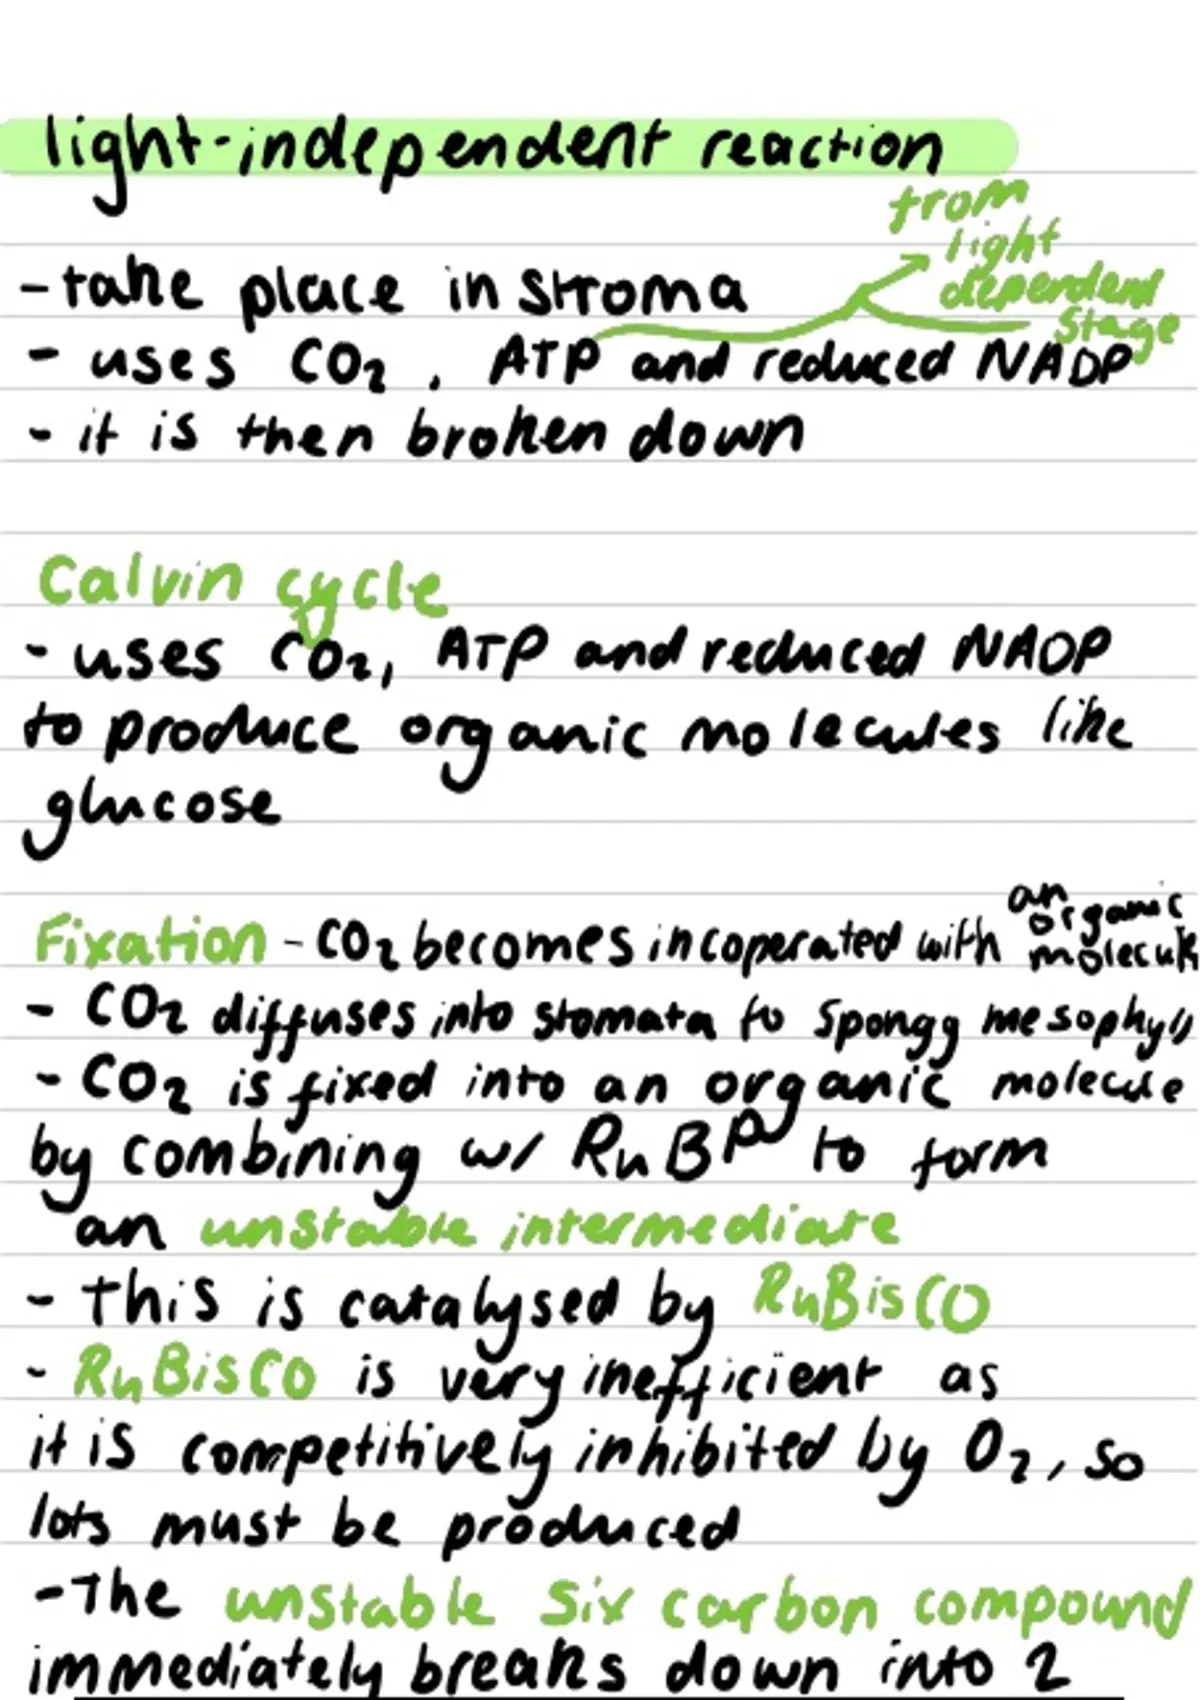 light-independent reaction
from
light
dependent
stage
- take place in stroma
- uses CO2, ATP and reduced NADP
- it is then broken down
Calvin cycle
- uses CO2, ATP and reduced NADP
to produce organic molecules like
glucose
an
organic
molecule
Fixation - CO2 becomes incoperated with
- CO2 diffuses into stomata to spongy mesophyll
- CO2 is fixed into an organic molecule
by combining w/ RuBP to form
an unstable intermediate
- This is catalysed by RuBisCO
- RuBisCO is very inefficient as
it is competitively inhibited by O2, so
lots must be produced
- The unstable six carbon compound
immediately breaks down into 2